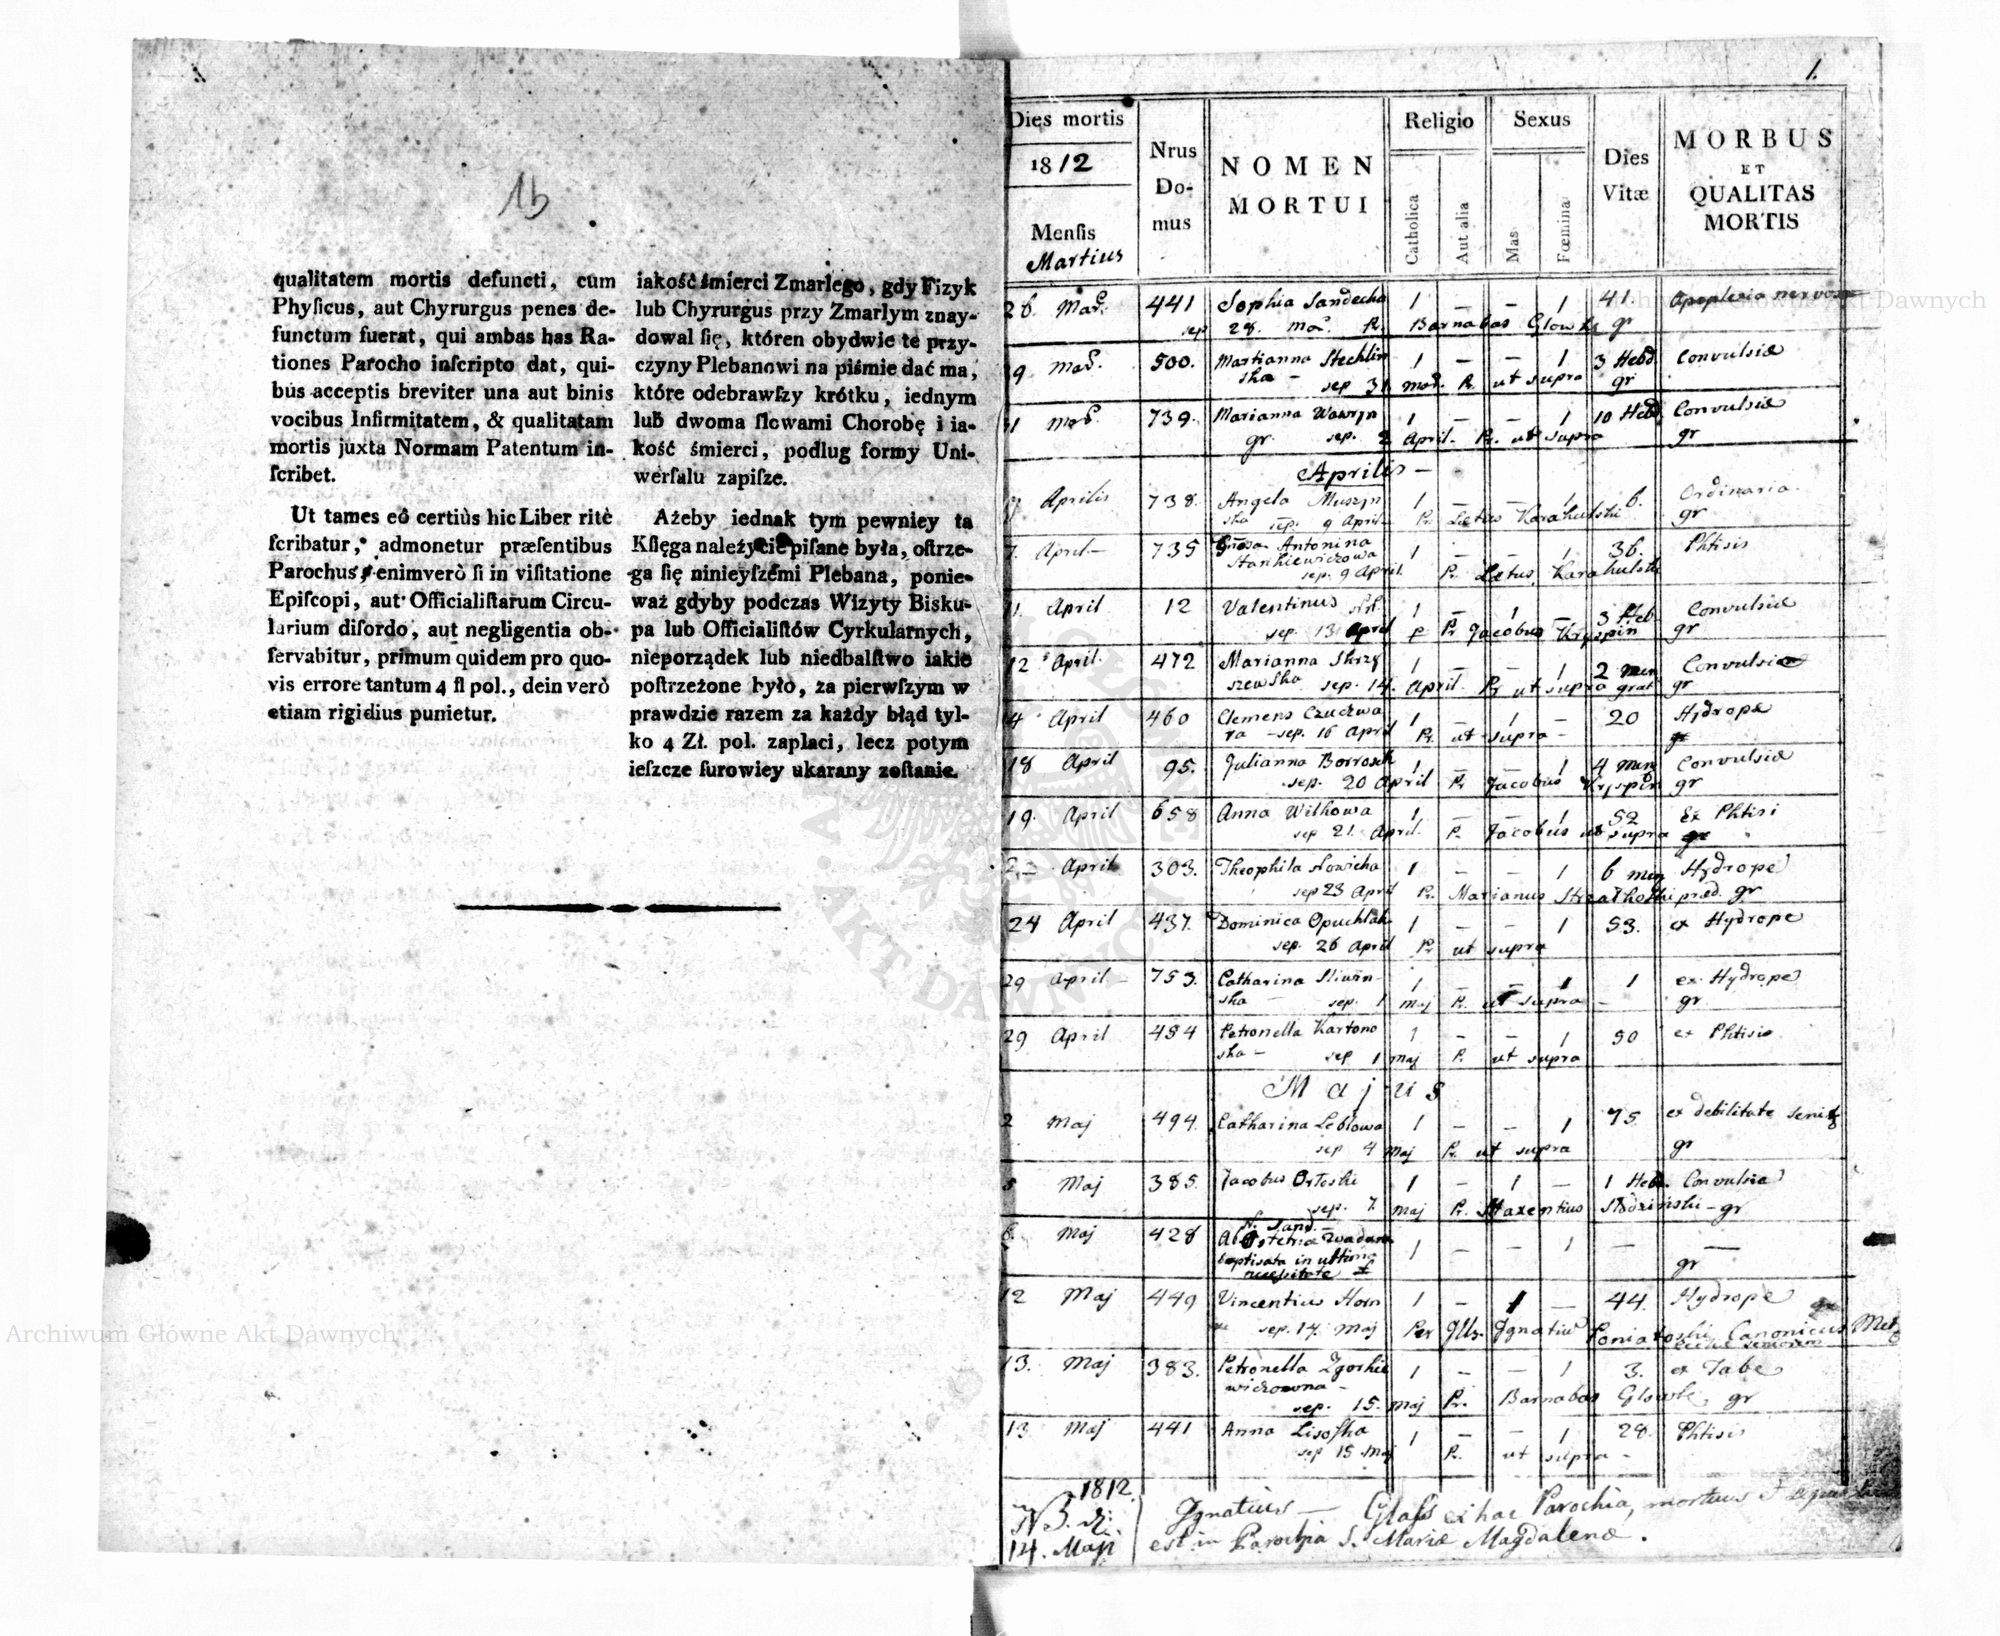 1b
qualitatem mortis defuncti, cum
Phyſicus, aut Chyrurgus penes de-
functum fuerat, qui ambas has Ra-
tiones Parocho inſcripto dat, qui-
bus acceptis breviter una aut binis
vocibus Infirmitatem, & qualitatam
mortis juxta Normam Patentum in-
ſcribet.
Ut tames eò certiùs hic Liber ritè
ſcribatur, admonetur præſentibus
Parochus, enimverò ſi in viſitatione
Epiſcopi, aut Officialiſtarum Circu-
larium diſordo, aut negligentia ob-
ſervabitur, primum quidem pro quo-
vis errore tantum 4 fl pol., dein verò
etiam rigidius punietur.
iakość śmierci Zmarłego, gdy Fizyk
lub Chyrurgus przy Zmarłym znay-
dował ſię, któren obydwie te przy-
czyny Plebanowi na piśmie dać ma,
które odebrawſzy krótku, iednym
lub dwoma ſłowami Chorobę i ia-
kość śmierci, podług formy Uni-
werſału zapiſze.
Ażeby iednak tym pewniey ta
Kſięga należycie piſane była, oſtrze-
ga ſię ninieyſzémi Plebana, ponie-
waż gdyby podczas Wizyty Bisku-
pa lub Officialiſtów Cyrkularnych,
nieporządek lub niedbalſtwo iakie
poſtrzeżone było, za pierwſzym w
prawdzie razem za każdy błąd tyl-
ko 4 Zł. pol. zapłaci, lecz potym
ieſzcze ſurowiey ukarany zoſtanie.
1.
Dies mortis
1812
Menſis
Martius
Nrus
Do-
mus
NOMEN
MORTUI
Religio
Catholica
Aut alia
Sexus
Mas
Fœmina
Dies
Vitæ
MORBUS
ET
QUALITAS
MORTIS
26. 441 Sophia Sandecka 1 — — 1 41 Apoplexia nervosa
sep 28. Barnabas gr
500. Marianna Stechlin 1 — — 1 3 Hebd Convulsiæ
ska — sep 31 ut supra gr
739. Marianna Wawrzn 1 — — 1 10 Hebd Convulsiæ
gr. sep. 2 April. Pr. ut supra gr
Aprilis —
Aprilis 738. Angela Muszyn 1 — — 1 6. Ordinaria.
ska sep. 9 April — Pr. Letus Karahulski gr
April — 735 Antonina 1 — — 1 36. Phtisis
Stankiewiczowa
sep. 9 April. Pr Letus Karahulski
11. April 12 Valentinus 1 — 1 — 3 Heb Convulsiæ
sep. 13 April Pr Jacobus Kryspin gr
12 April. 472 Marianna Skrzy 1 — — 1 2 Convulsiæ
szewska sep. 14. April. Pr ut supra gr
April 460 Clemens Czuczwa 1 — 1 — 20 Hydrope
ra — sep. 16 April Pr. ut supra —
18 April 95. Julianna Borrosch 1 — — 1 4 Convulsiæ
sep. 20 April Pr Jacobus Kryspin gr
19. April 658 Anna Wilkowa 1 — — 1 52 Ex Phtisi
sep 21. April. Pr. Jacobus ut supra
April 303. Theophila Nowicka 1 — — 1 6 Hydrope
sep 23 April Pr. Marianus gr
24 April 437. Dominica Opuchlak 1 — — 1 53. ex Hydrope
sep. 26 April Pr ut supra
29 April — 753. Catharina Sliwin- 1 — — 1 1 ex Hydrope
ska — sep. 1 Maj Pr. ut supra — gr
29 April 484 Petronella Kartono 1 — — 1 50 ex Phtisis
ska — sep 1 Maj Pr. ut supra
Majus
2 Maj 494. Catharina Leblowa 1 — — 1 75. ex debilitate
sep 4 Maj Pr. ut supra gr
5 Maj 385. Jacobus Orloski 1 — 1 — 1 Heb. Convulsia
sep. 7 Maj Pr. Maxentius gr
6. Maj 428 1 — — 1 — —
baptisata in ultima
necessitate gr
12 Maj 449 Vincentius Horn 1 — 1 — 44. Hydrope
sep. 14. Maj Per Ignatius Canonicus
13. Maj 383. Petronella Zgorkie 1 — — 1 3. ex Tabe
wiczowna —
sep. 15. Maj Pr. Barnabas gr
13 Maj 441 Anna Lisoska 1 — — 1 28. Phtisis
sep 15 Maj Pr. ut supra —
1812
NB.
14. Maji
Ignatius — Glass ex hac Parochia, mortuus
est in Parochia S. Mariæ Magdalenæ.
Archiwum Główne Akt Dawnych
Archiwum Główne Akt Dawnych